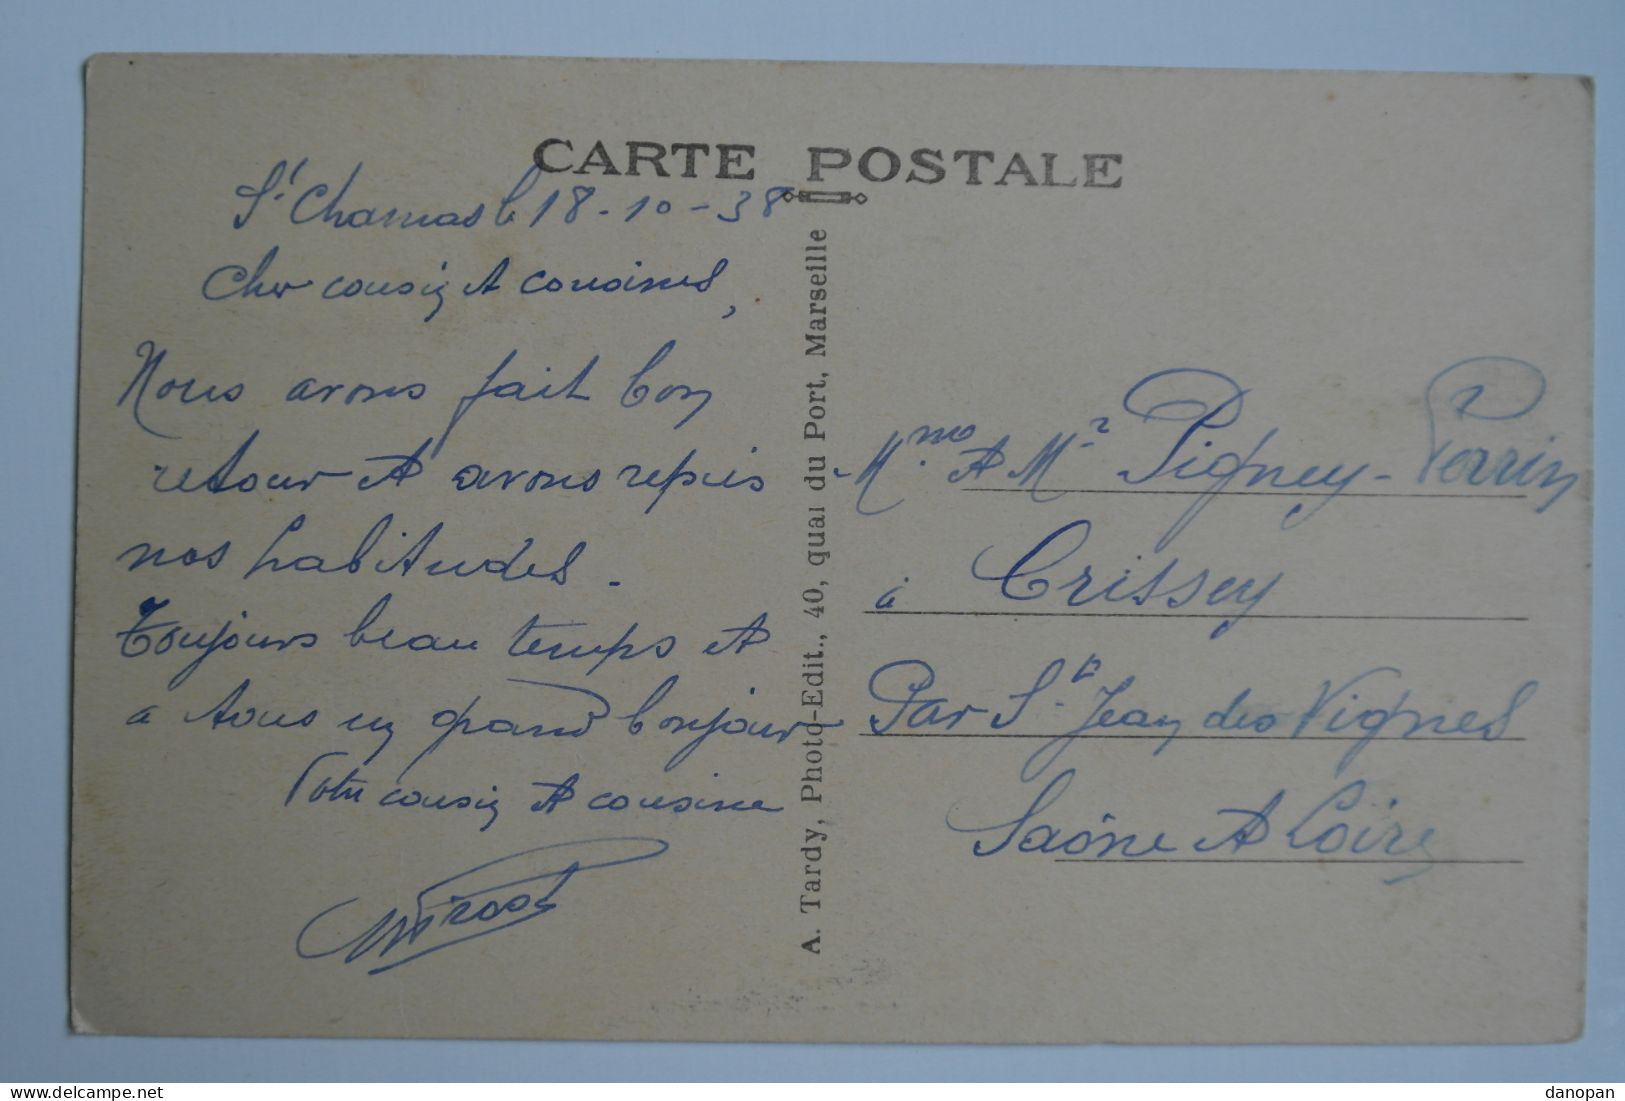 CARTE POSTALE
St Chamas le 18-10-38
Cher cousin et cousines,
Nous avons fait bon
retour et avons repris
nos habitudes.
Toujours beau temps et
a tous un grand bonjour
Votre cousin et cousine
A. Tardy, Photo-Edit., 40, quai du Port, Marseille
Mme et Mr Pigney-Perrin
à Crissey
Par St Jean des Vignes
Saône et Loire
danopan